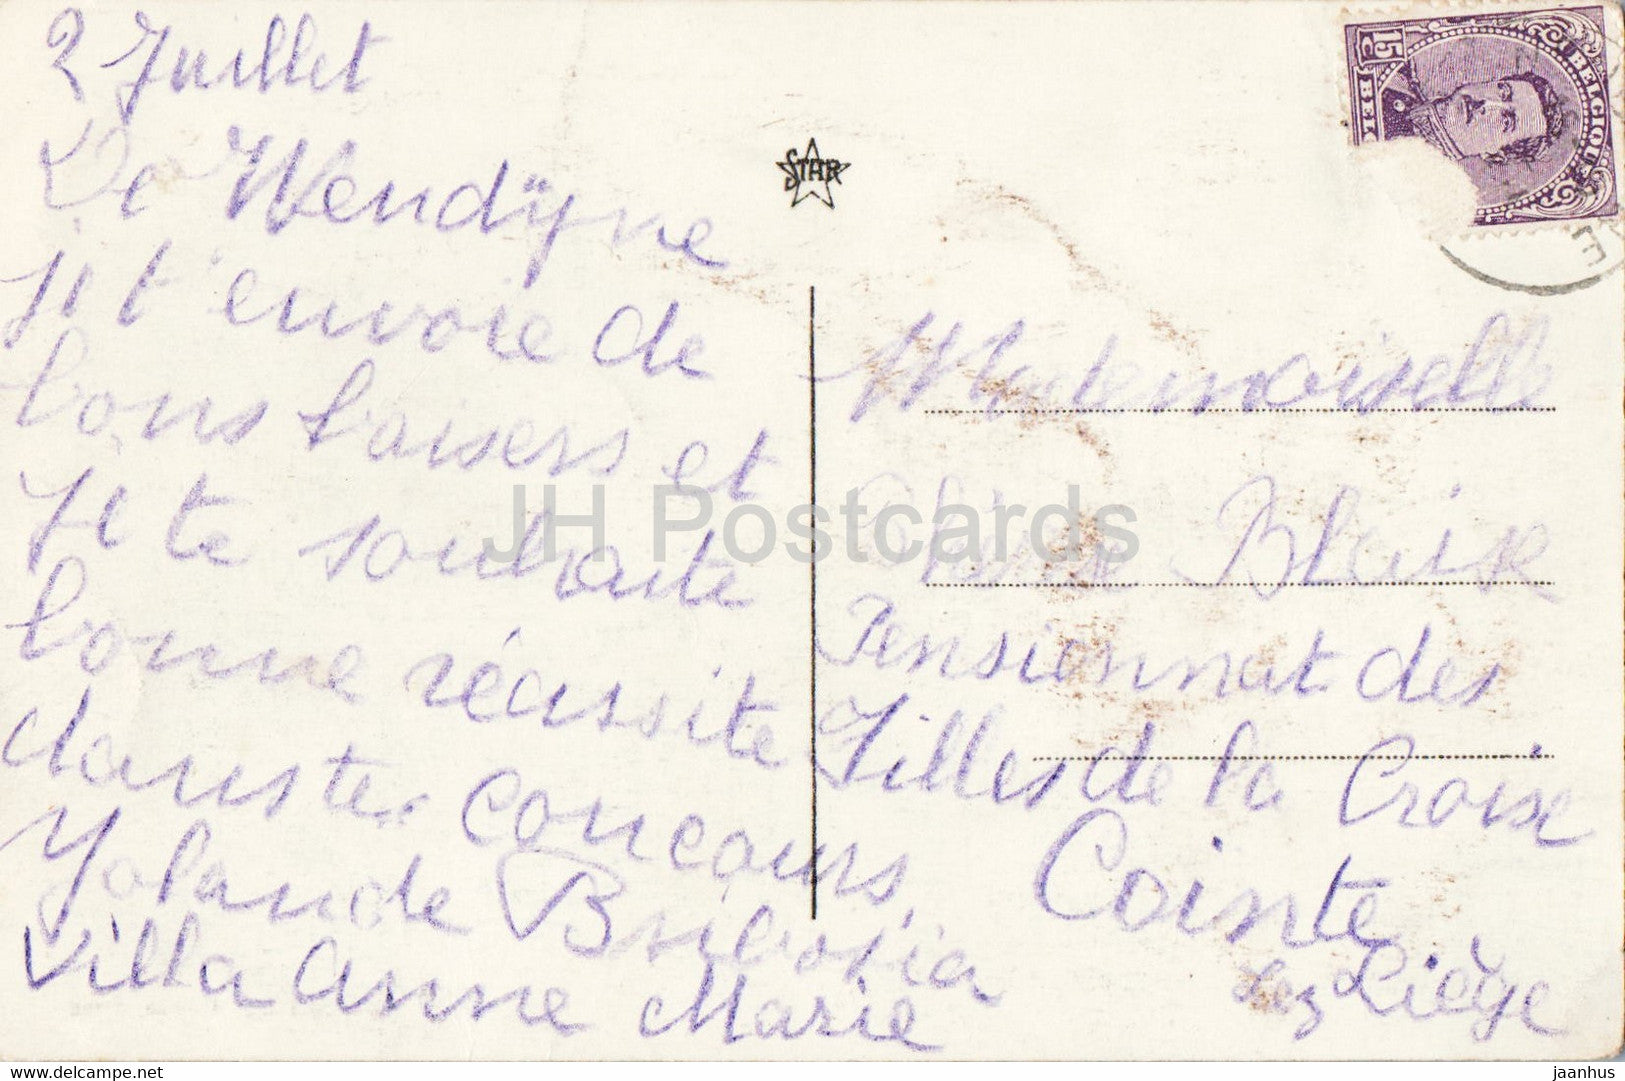 2 Juillet
De Wendÿne
Je t'envoie de
bons baisers et
Je te souhaite
bonne réussite
dans tes concours,
Yolande
Villa Anne Marie
STAR
15 C
BELGIQUE
BELG
Mademoiselle
Blaise
Pensionnat des
Filles de la Croix
Cointe
Lez Liège
JH Postcards
delcampe.net
jaanhus